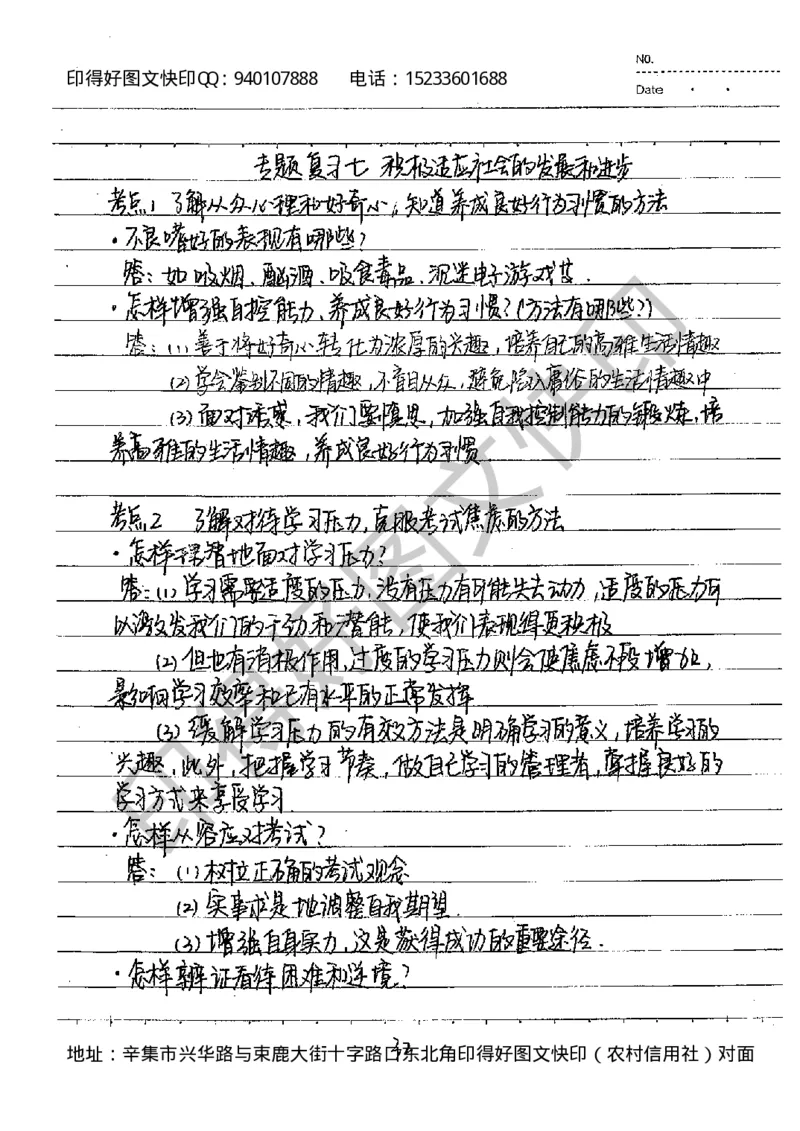 NO.
印得好图文快印QQ：940107888 电话：15233601688
Date
专题复习七 积极适应社会的发展和进步
考点1 了解从众心理和好奇心，知道养成良好行为习惯的方法
·不良嗜好的表现有哪些？
答：如吸烟、酗酒、吸食毒品、沉迷电子游戏等.
·怎样增强自控能力，养成良好行为习惯？(方法有哪些？)
答：(1)善于将好奇心转化为浓厚的兴趣，培养自己的高雅生活情趣
(2)学会鉴别不同的情趣，不盲目从众，避免陷入庸俗的生活情趣中
(3)面对诱惑，我们要慎思，加强自我控制能力的锻炼，培
养高雅的生活情趣，养成良好行为习惯.
考点2 了解对待学习压力，克服考试焦虑的方法
·怎样理智地面对学习压力？
答：(1)学习需要适度的压力，没有压力有可能失去动力，适度的压力可
以激发我们的干劲和潜能，使我们表现得更积极
(2)但也有消极作用，过度的学习压力则会使焦虑不段增加，
影响学习效率和已有水平的正常发挥
(3)缓解学习压力的有效方法是明确学习的意义，培养学习的
兴趣，此外，把握学习节奏，做自己学习的管理者，掌握良好的
学习方式来享受学习.
·怎样从容应对考试？
答：(1)树立正确的考试观念
(2)实事求是地调整自我期望.
(3)增强自身实力，这是获得成功的重要途径.
·怎样辨证看待困难和逆境？
32
地址：辛集市兴华路与束鹿大街十字路口东北角印得好图文快印（农村信用社）对面
印得好图文快印